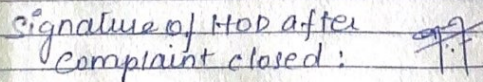 Signature of HOD after
Complaint closed :